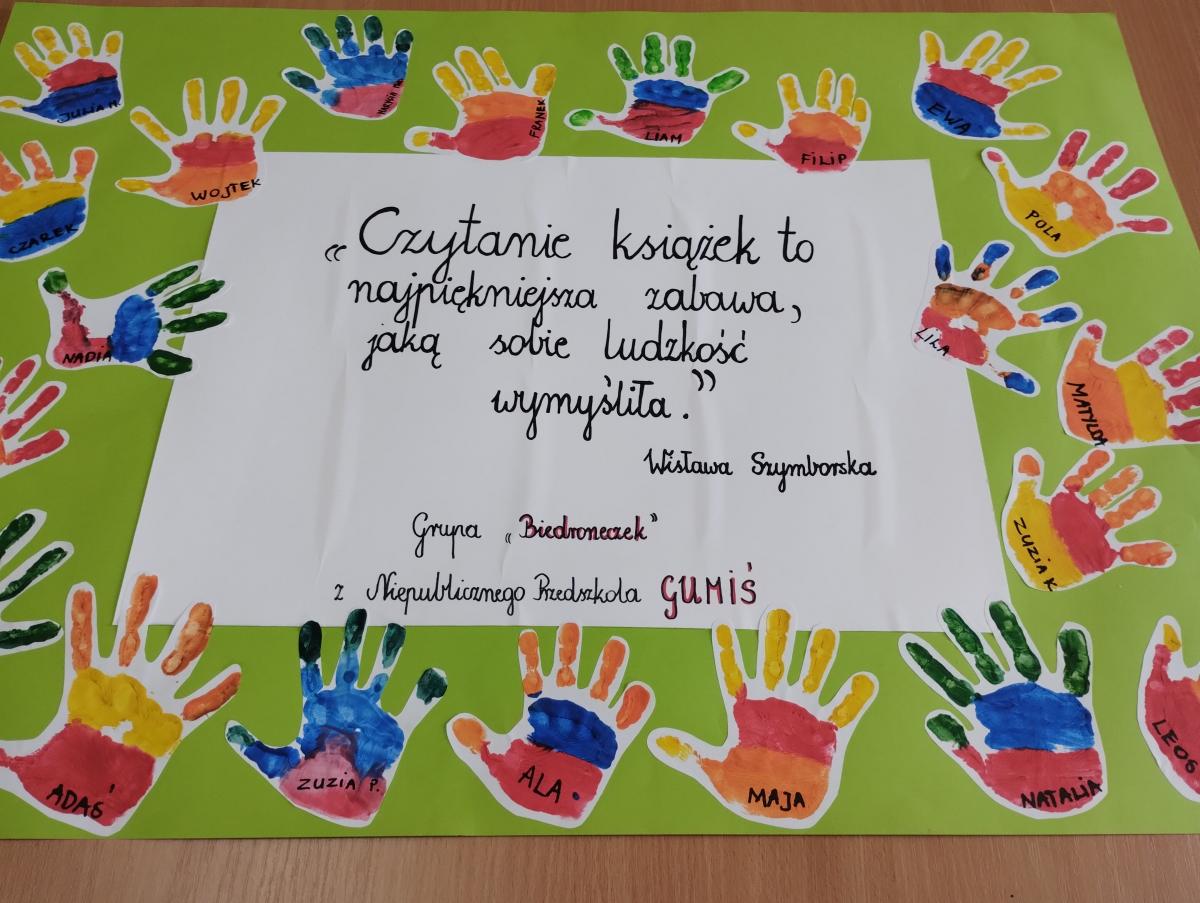 JULIA M.
WOJTEK
FRANEK
LIAM
FILIP
EWA
POLA
CZAREK
NADIA
LILA
MATYLDA
ZUZIA K.
„Czytanie książek to
najpiękniejsza zabawa,
jaką sobie ludzkość
wymyśliła."
Wisława Szymborska
Grupa „Biedroneczek"
z Niepublicznego Przedszkola GUMIŚ
ADAŚ
ZUZIA P.
ALA
MAJA
NATALIA
LEOŚ